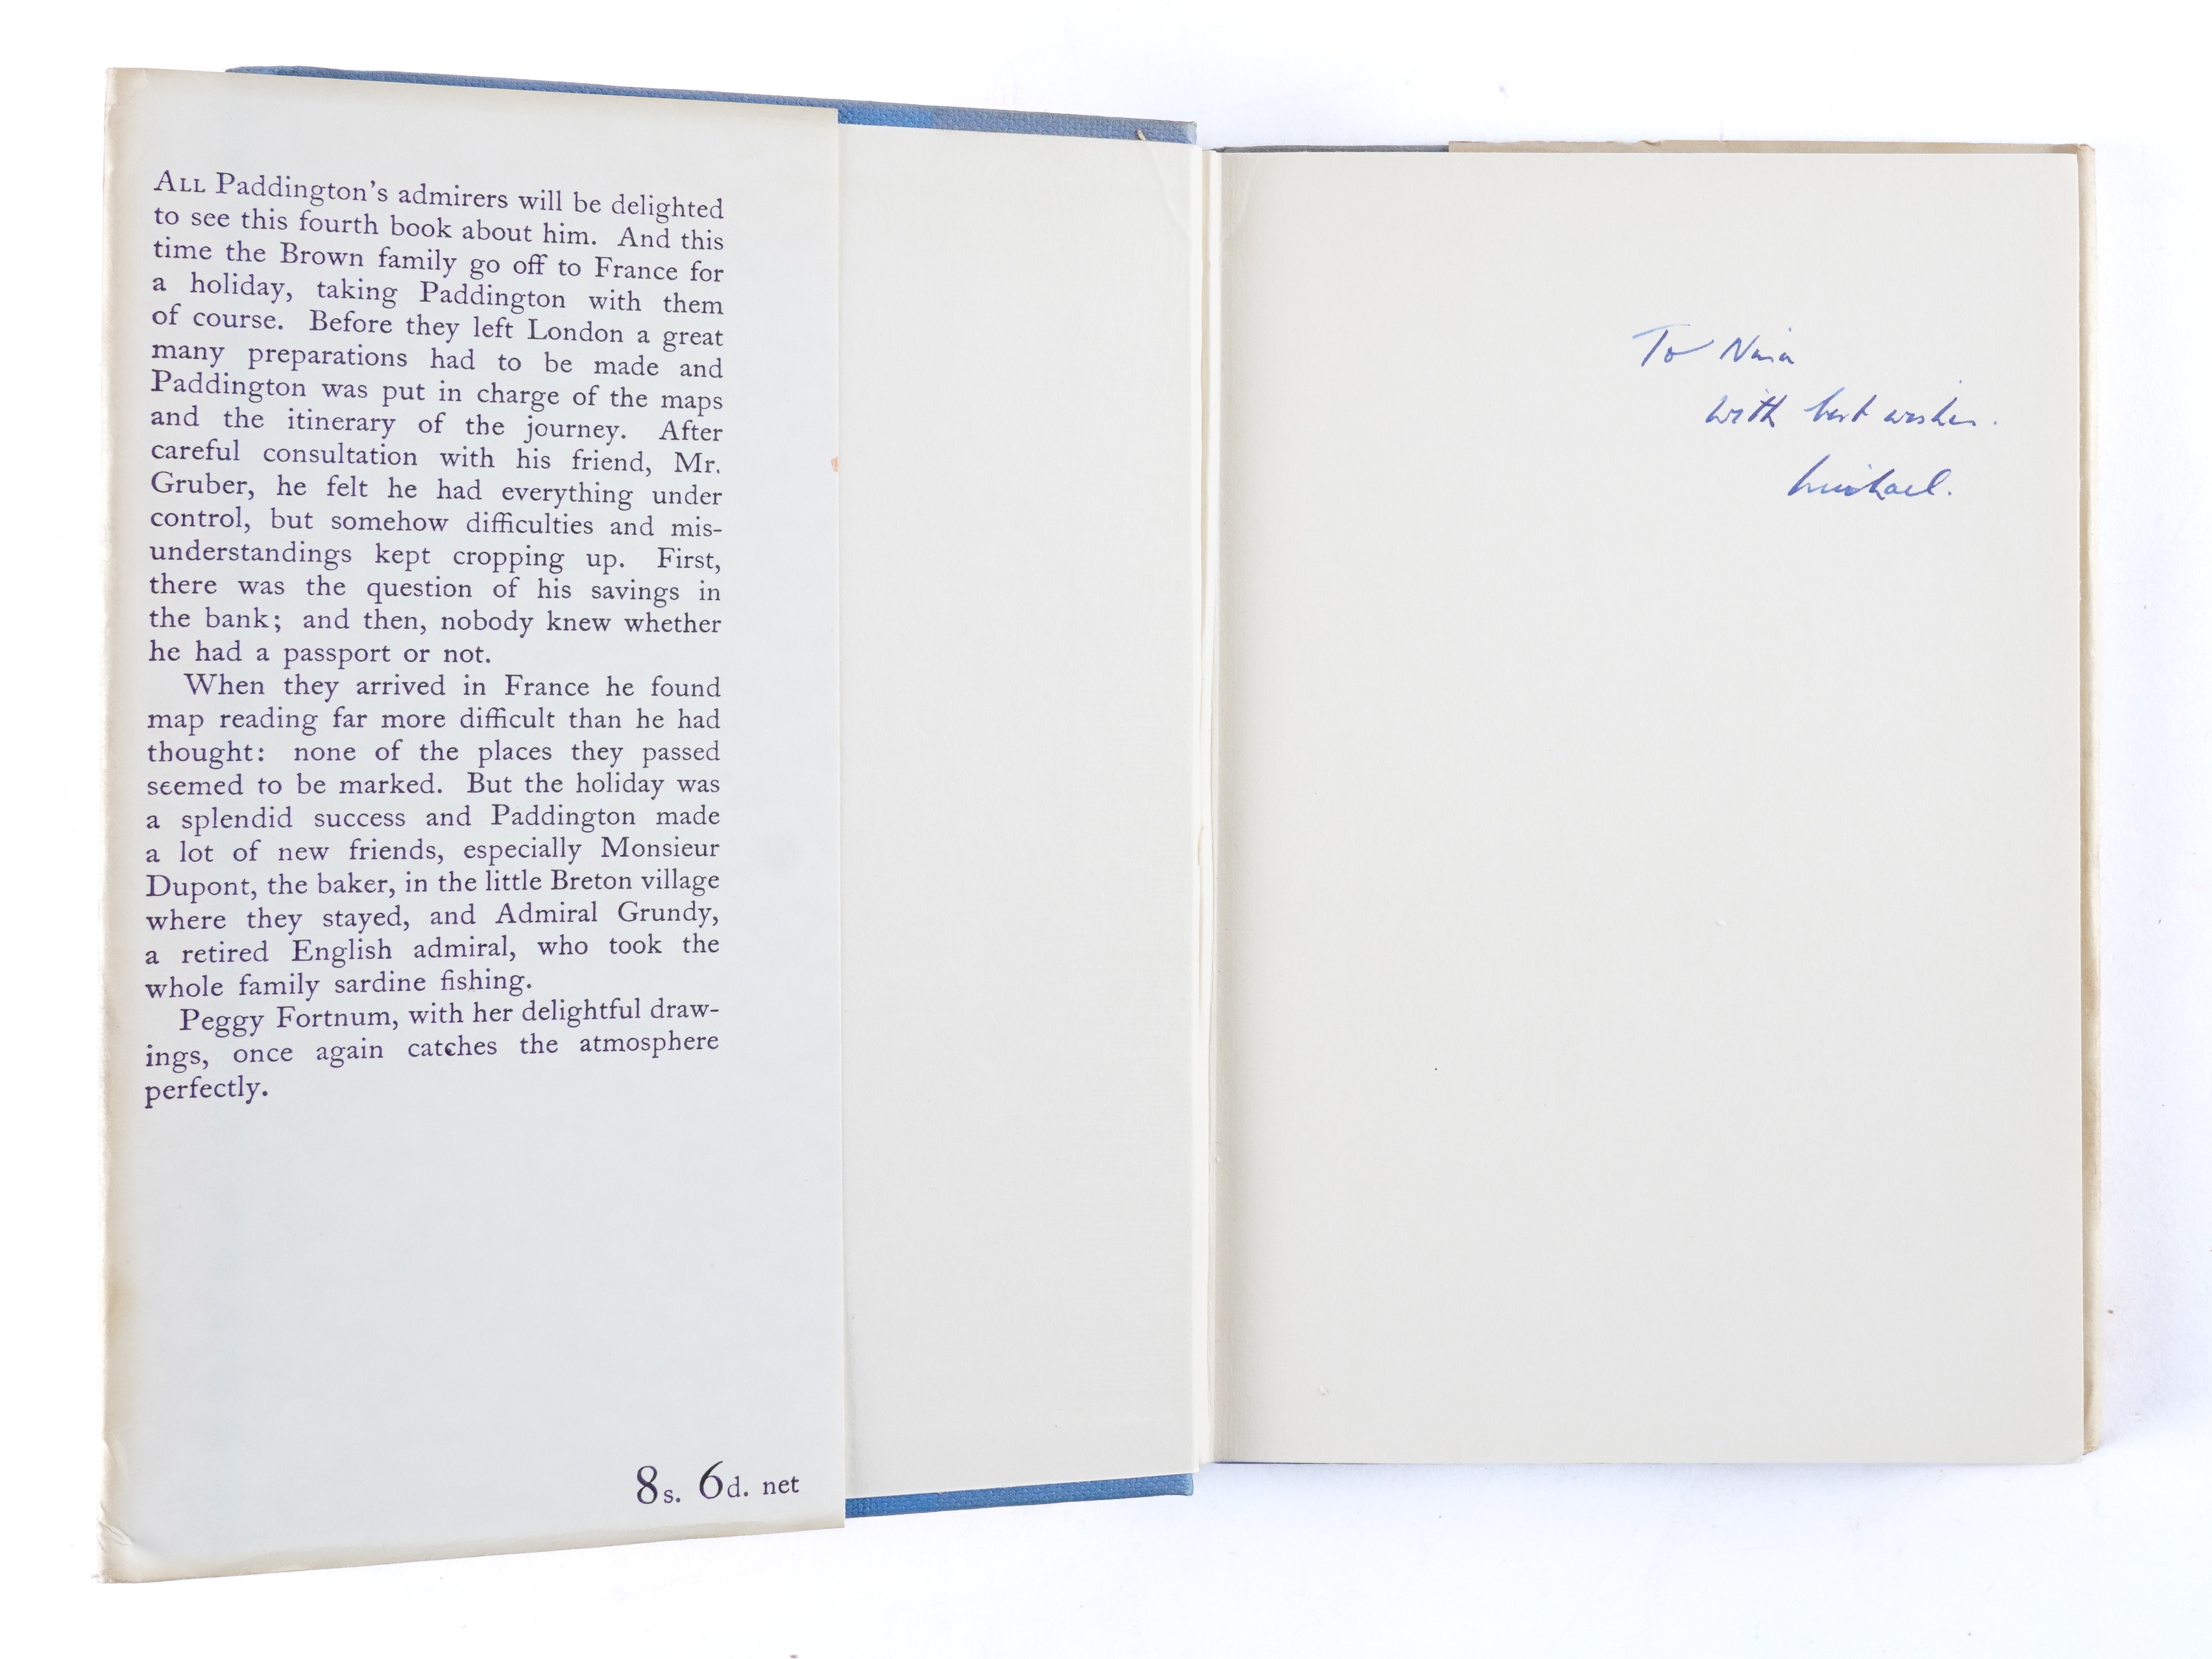 ALL Paddington's admirers will be delighted
to see this fourth book about him. And this
time the Brown family go off to France for
a holiday, taking Paddington with them
of course. Before they left London a great
many preparations had to be made and
Paddington was put in charge of the maps
and the itinerary of the journey. After
careful consultation with his friend, Mr.
Gruber, he felt he had everything under
control, but somehow difficulties and mis-
understandings kept cropping up. First,
there was the question of his savings in
the bank; and then, nobody knew whether
he had a passport or not.
When they arrived in France he found
map reading far more difficult than he had
thought: none of the places they passed
seemed to be marked. But the holiday was
a splendid success and Paddington made
a lot of new friends, especially Monsieur
Dupont, the baker, in the little Breton village
where they stayed, and Admiral Grundy,
a retired English admiral, who took the
whole family sardine fishing.
Peggy Fortnum, with her delightful draw-
ings, once again catches the atmosphere
perfectly.
8s. 6d. net
To Nina
with best wishes.
Michael.